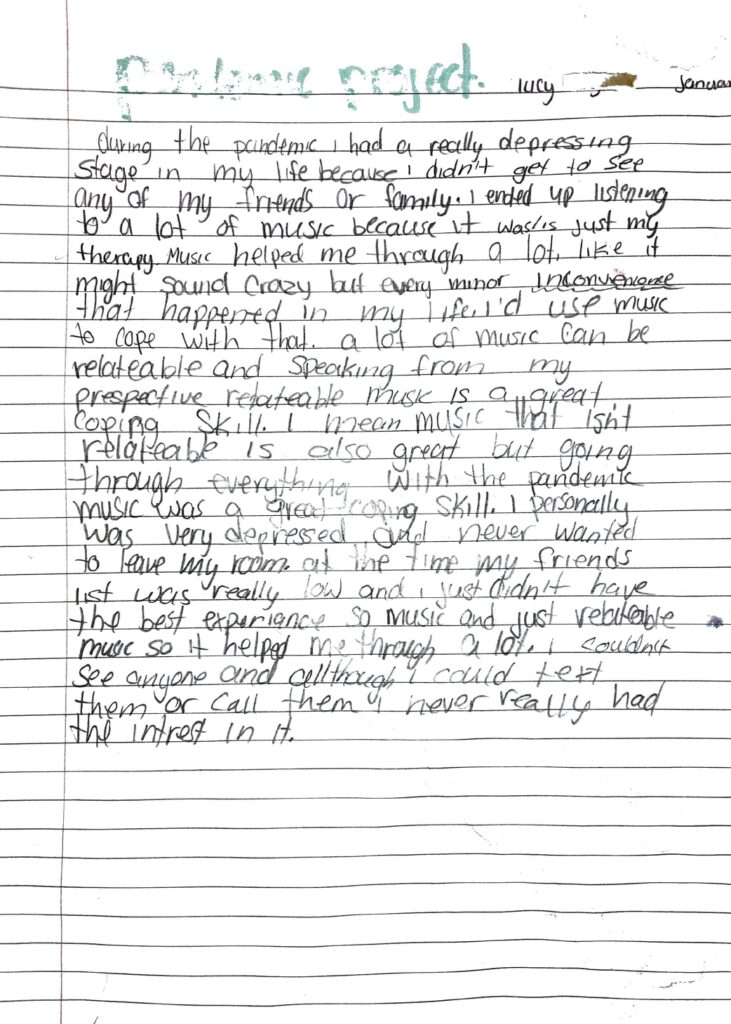 pandemic project. lucy januar
during the pandemic i had a really depressing
stage in my life because i didn't get to see
any of my friends or family. i ended up listening
to a lot of music because it was/is just my
therapy. Music helped me through a lot, like it
might sound crazy but every minor inconvenience
that happened in my life, i'd use music
to cope with that. a lot of music can be
relateable and speaking from my
prespective relateable music is a great
coping skill. I mean music that isn't
relateable is also great but going
through everything with the pandemic
music was a great coping skill. I personally
was very depressed and never wanted
to leave my room. at the time my friends
list was really low and i just didn't have
the best experiance so music and just relateable
music so it helped me through a lot. i couldn't
see anyone and allthough i could text
them or call them i never really had
the intrest in it.